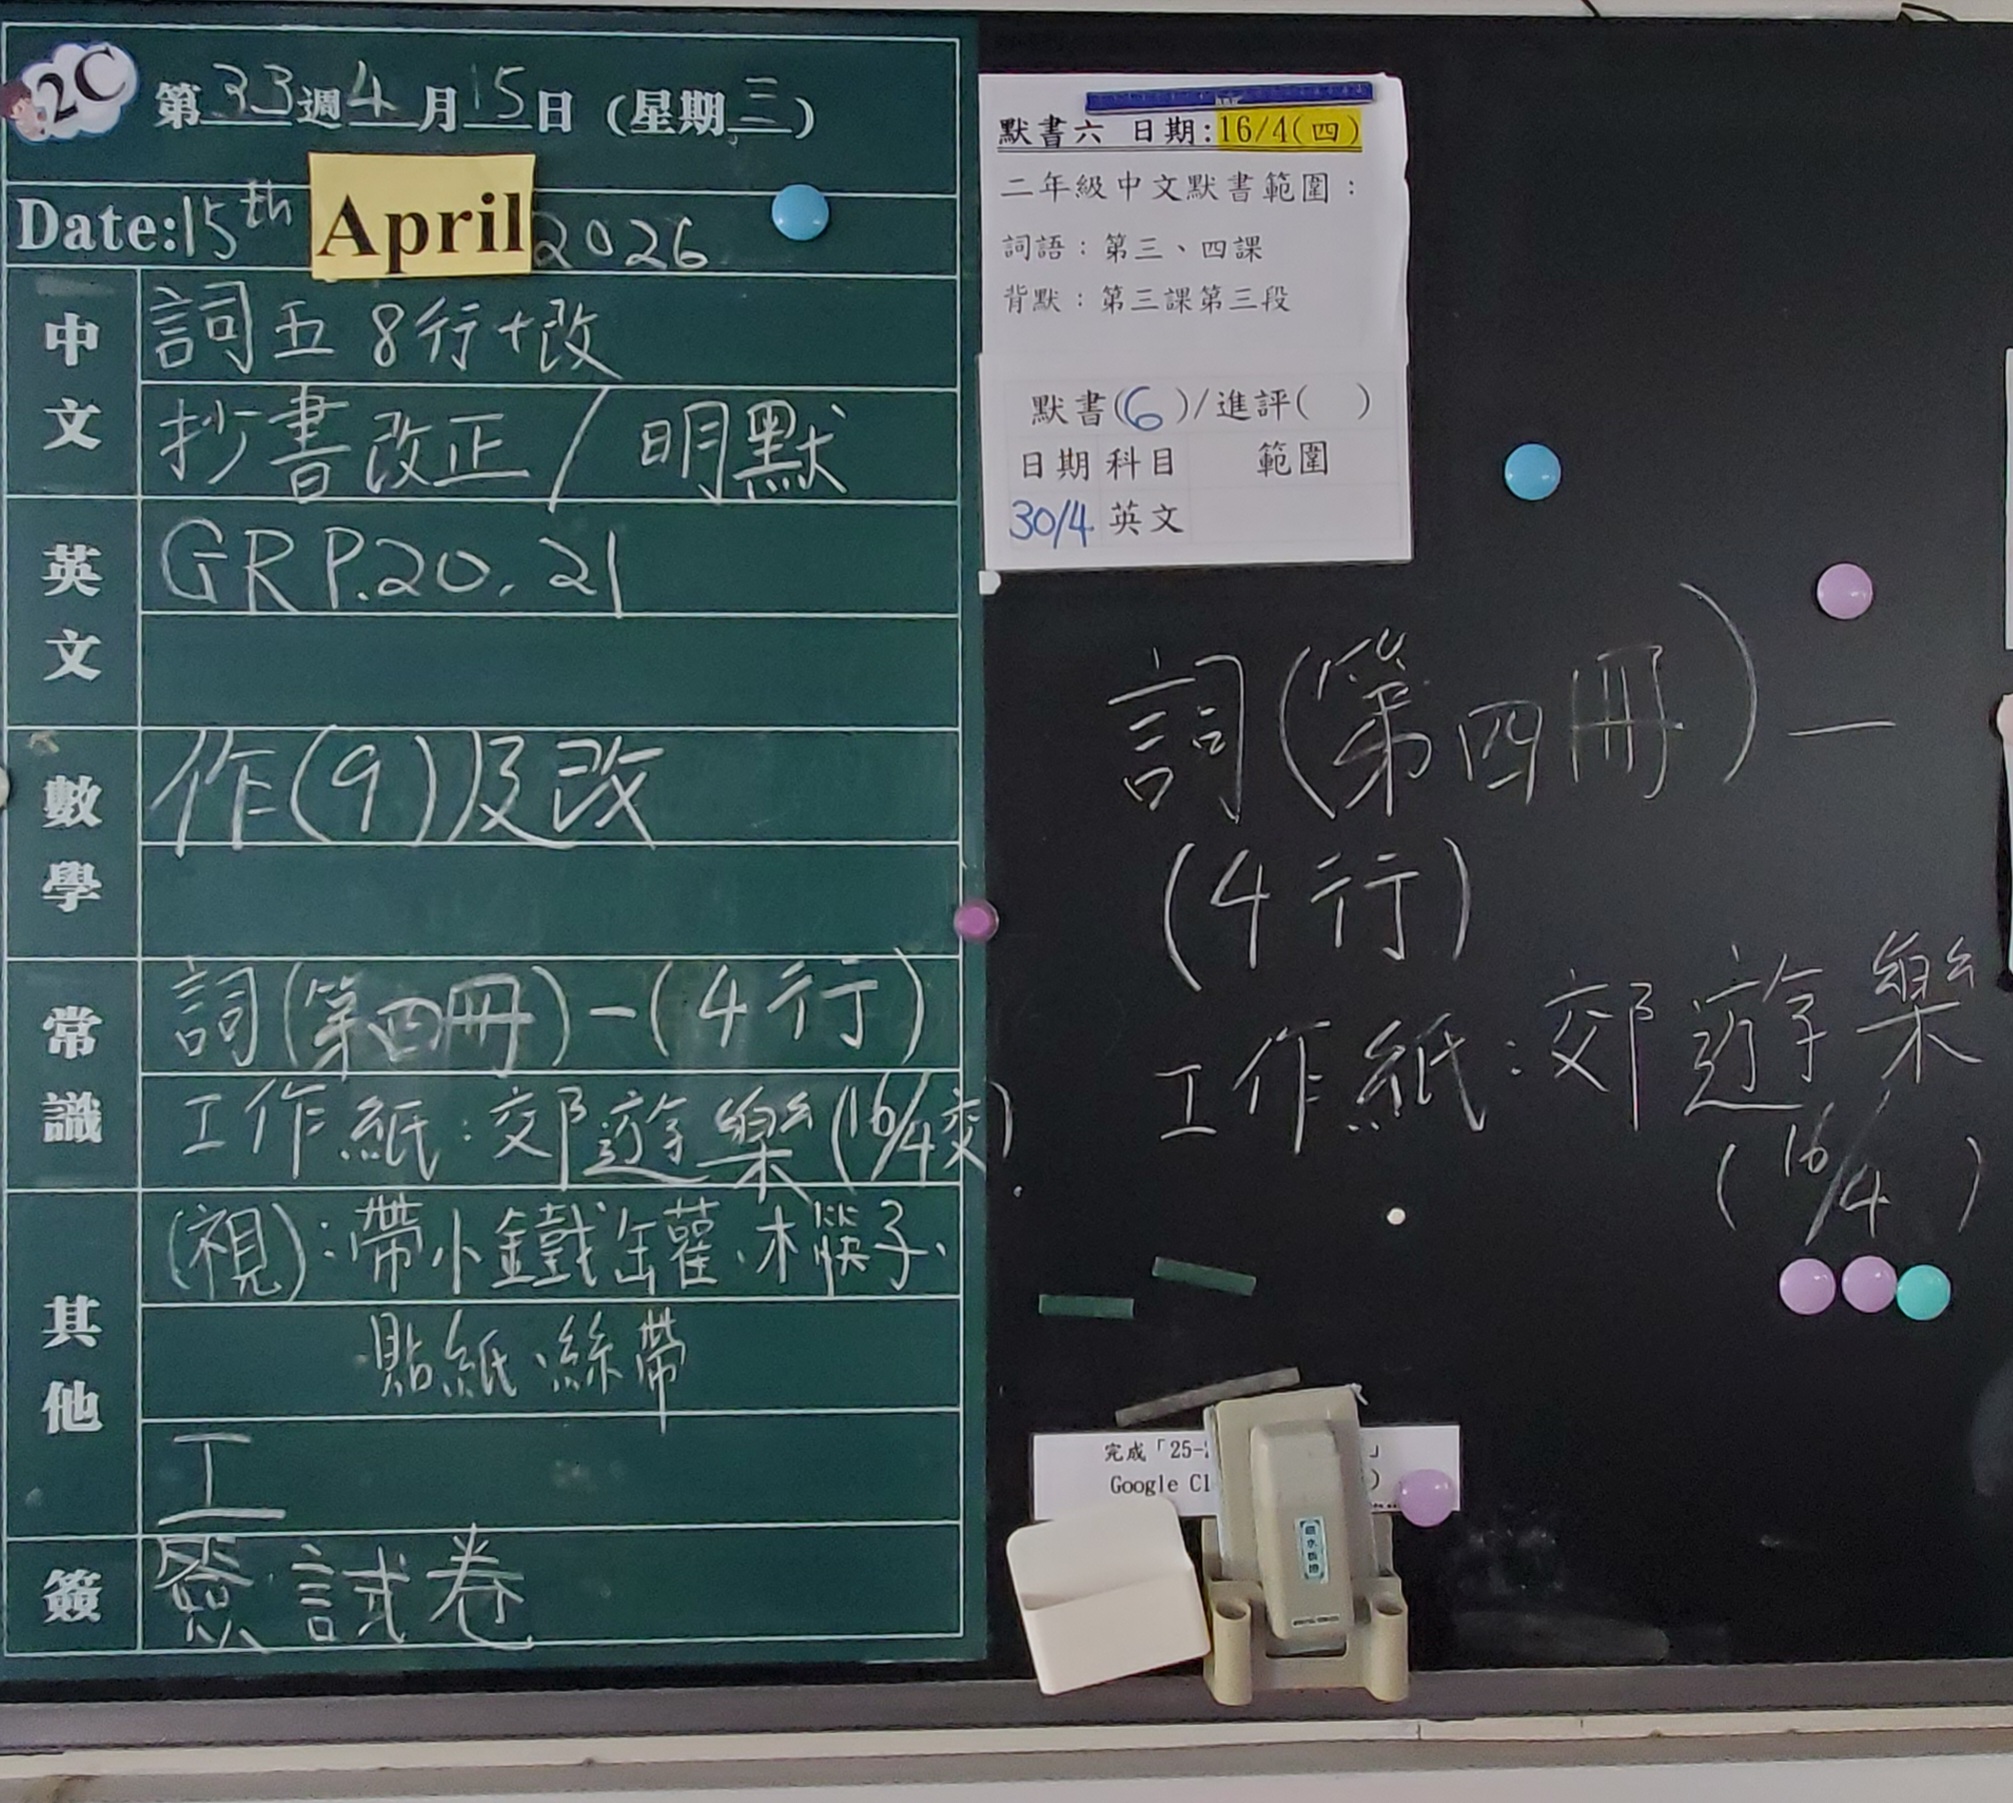 2C
第33週4月15日(星期三)
Date:15th April 2026
中文
詞五 8行+改
抄書改正/明默
英文
GRP.20,21
數學
作(9)及改
常識
詞(第四冊)一(4行)
工作紙:郊遊樂(16/4交)
其他
(視):帶小鐵罐、木筷子、
貼紙、絲帶
工
簽
簽試卷
默書六 日期:16/4(四)
二年級中文默書範圍:
詞語:第三、四課
背默:第三課第三段
默書(6)/進評( )
日期 科目 範圍
30/4 英文
詞(第四冊)一
(4行)
工作紙:郊遊樂
(16/4 )
完成「25-
」
Google Cl
)